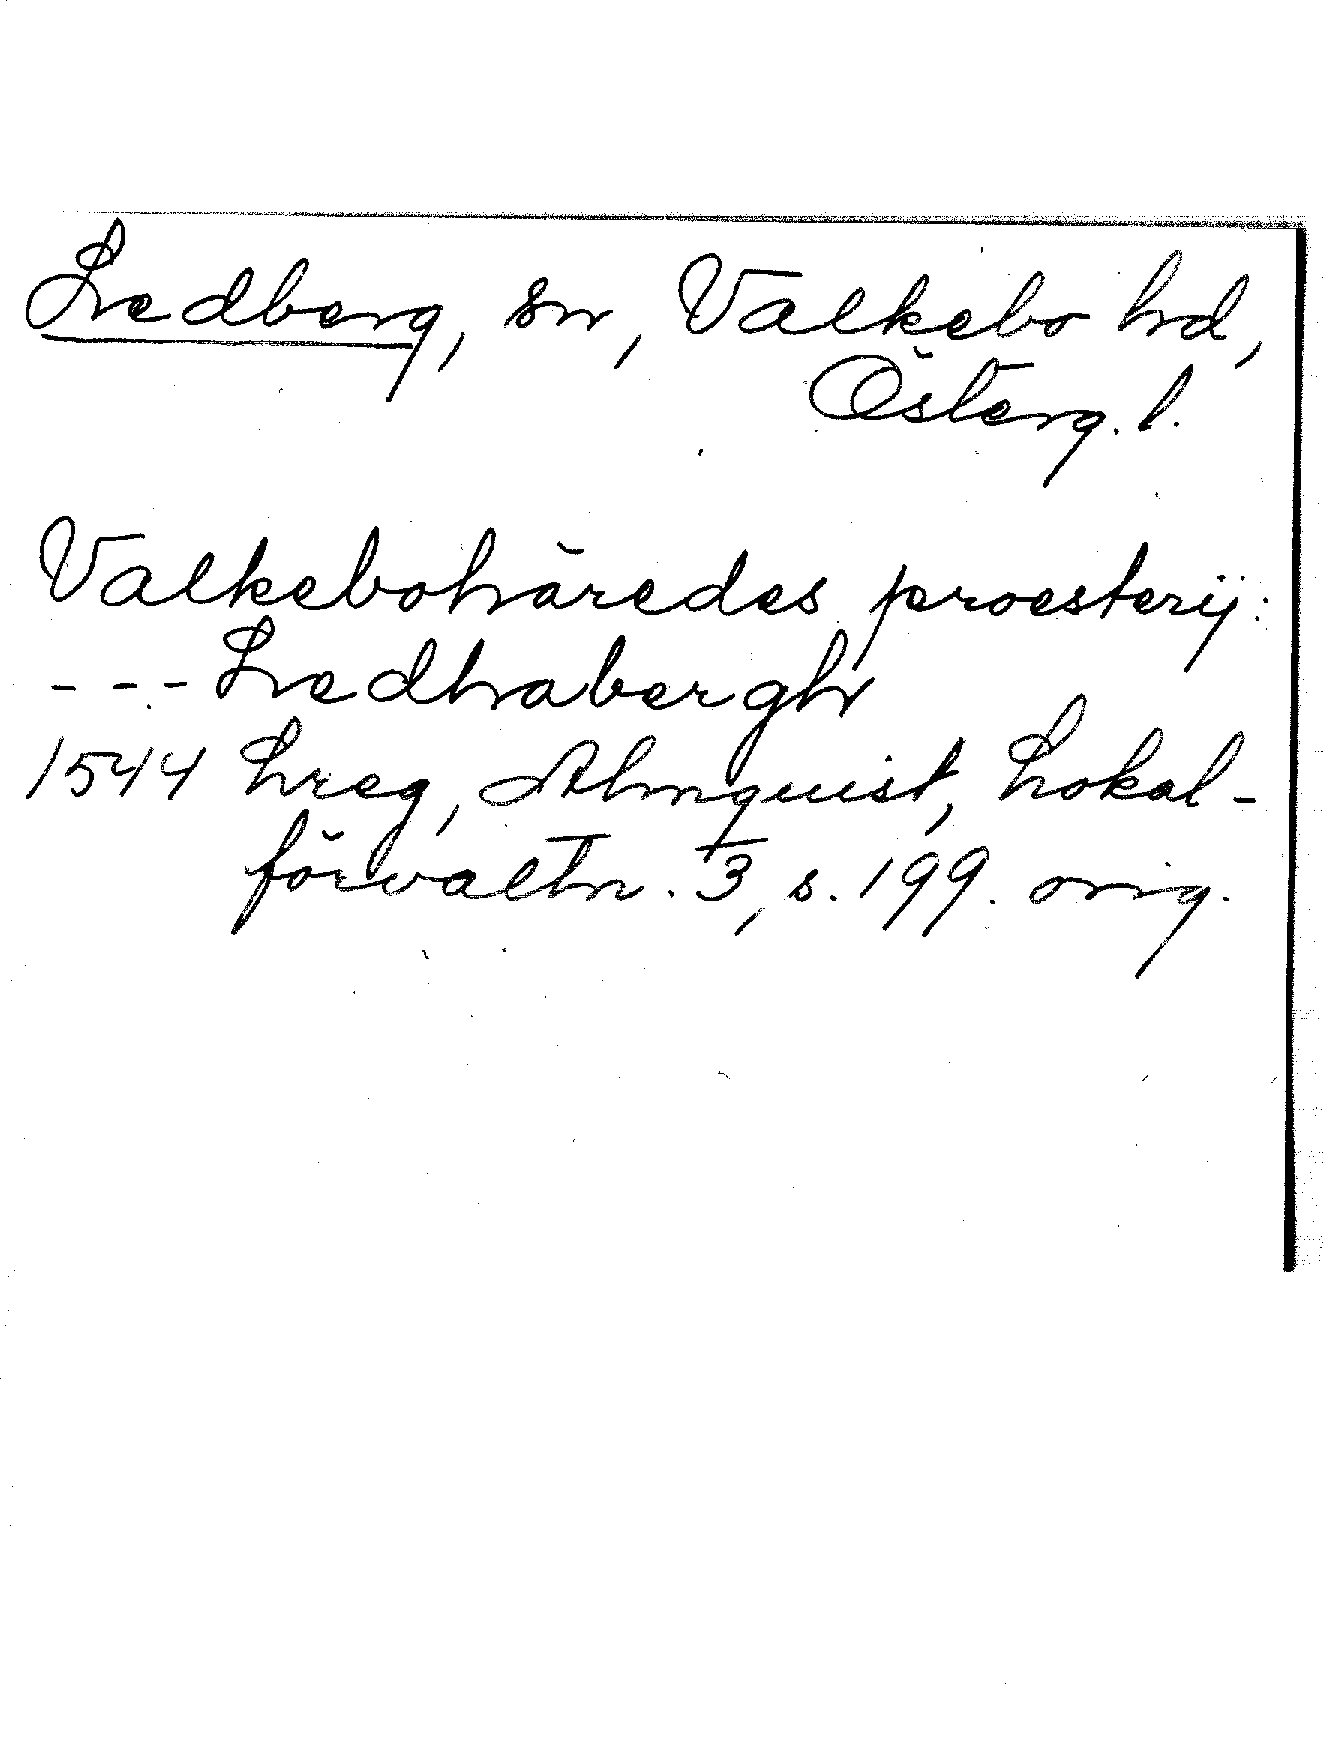 Ledberg, sn, Valkebo hd,
Österg. l.
Valkebohäredes proesterij:
--- Ledhabergh
1544 Lreg, Almquist, Lokal-
förvaltn. 3, s. 199. orig.